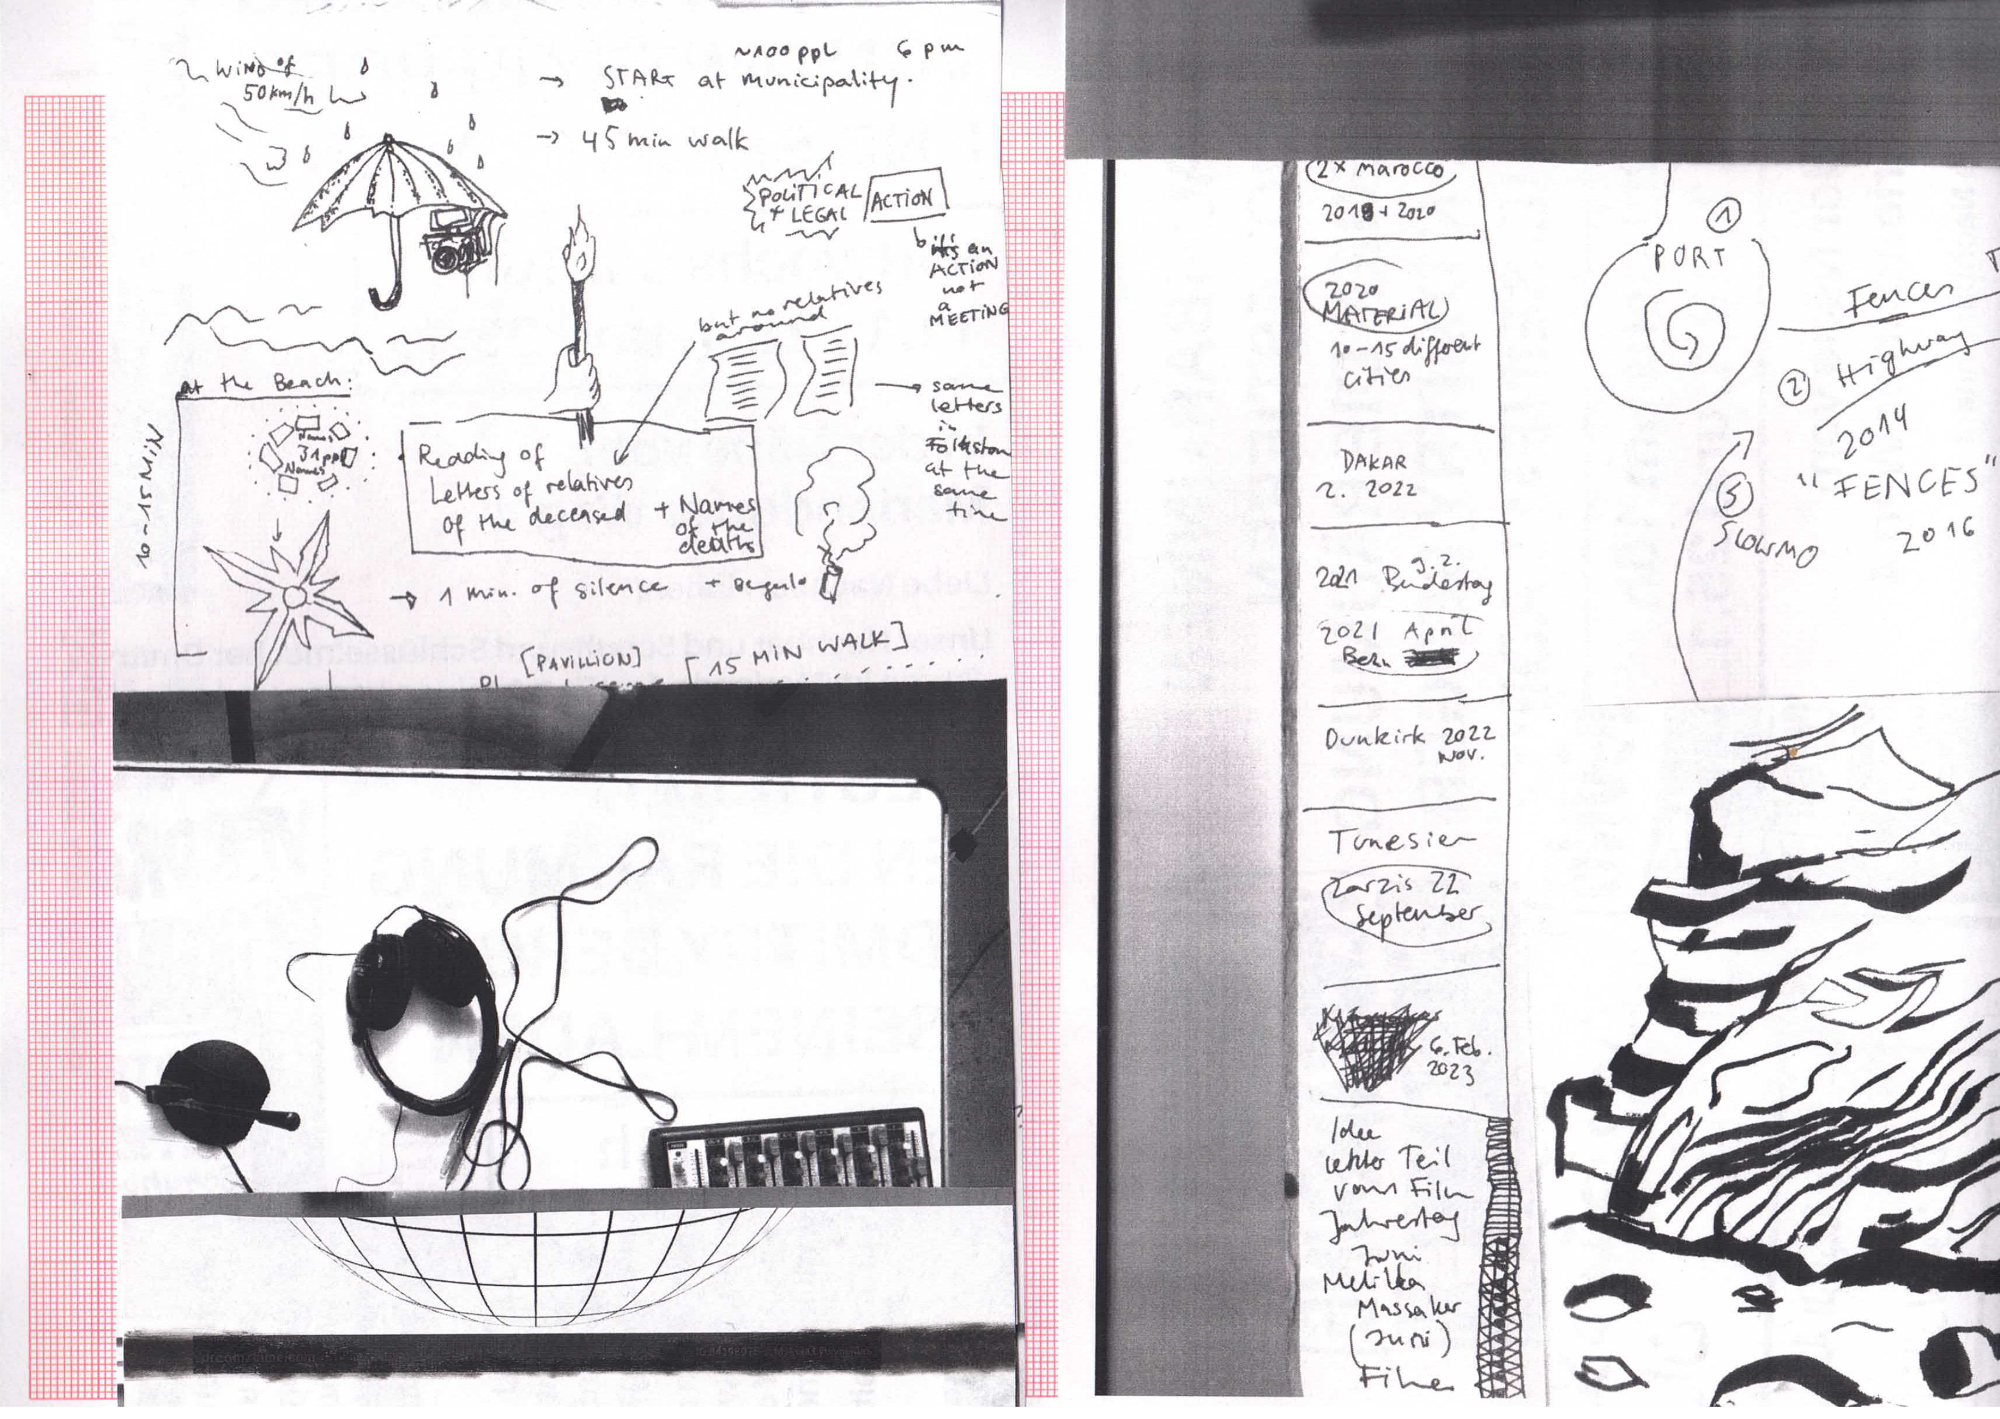 WIND of
50km/h
~100 ppl 6 pm
→ START at municipality.
→ 45 min walk
POLITICAL
+ LEGAL
ACTION
it's an
ACTION
not
a
MEETING
but no relatives
around
→ same
letters
in
at the
same
time
at the Beach:
10-15 MIN
Names
31 ppl
Names
Reading of
Letters of relatives
of the deceased + Names
of the
deaths
→ 1 min. of silence +
[PAVILLION] [15 MIN WALK]
2x Marocco
2018 + 2020
2020
MATERIAL
10-15 different
cities
DAKAR
2. 2022
2021 9.2.
Bundestag
2021 April
Dunkirk 2022
Nov.
Tunesien
Zarzis 22
September
6. Feb.
2023
Idee
letzter Teil
vom Film
Jahrestag
Juni
Melilla
Massaker
(Juni)
1
PORT
Fences
2 Highway
2014
"FENCES"
2016
SLOWMO